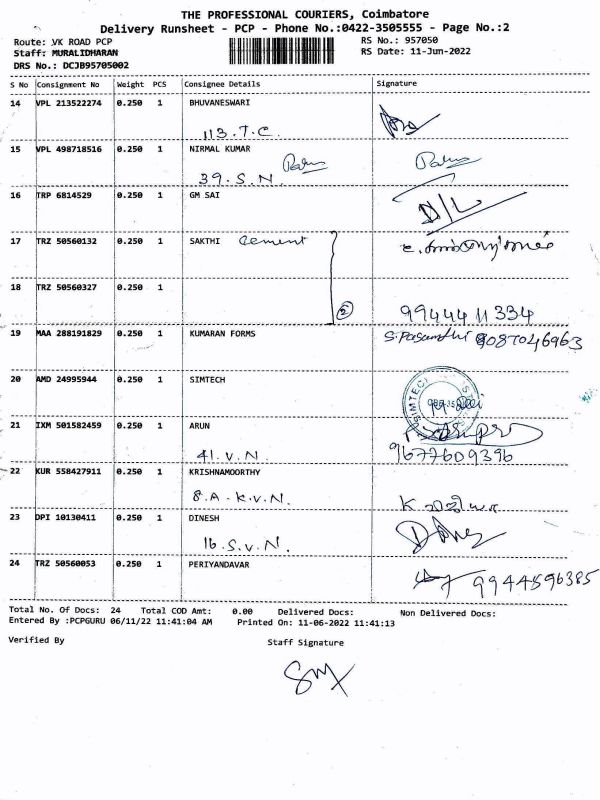 THE PROFESSIONAL COURIERS, Coimbatore
Delivery Runsheet - PCP - Phone No.:0422-3505555 - Page No.:2
Route: VK ROAD PCP
RS No.: 957050
Staff: MURALIDHARAN
RS Date: 11-Jun-2022
DRS No.: DCJB95705002
S No Consignment No Weight PCS Consignee Details Signature
14 VPL 213522274 0.250 1 BHUVANESWARI
113.T.C.
15 VPL 498718516 0.250 1 NIRMAL KUMAR
39.S.N.
16 TRP 6814529 0.250 1 GM SAI
D/L
17 TRZ 50560132 0.250 1 SAKTHI cement
18 TRZ 50560327 0.250 1
② 99444 11 334
19 MAA 288191829 0.250 1 KUMARAN FORMS 9087046963
20 AMD 24995944 0.250 1 SIMTECH
SIMTECH
21 IXM 501582459 0.250 1 ARUN
41.V.N. 9677609396
22 KUR 558427911 0.250 1 KRISHNAMOORTHY
8.A.K.V.N.
23 DPI 10130411 0.250 1 DINESH
16.S.V.N.
24 TRZ 50560053 0.250 1 PERIYANDAVAR
9944596385
Total No. Of Docs: 24 Total COD Amt: 0.00 Delivered Docs: Non Delivered Docs:
Entered By :PCPGURU 06/11/22 11:41:04 AM Printed On: 11-06-2022 11:41:13
Verified By Staff Signature